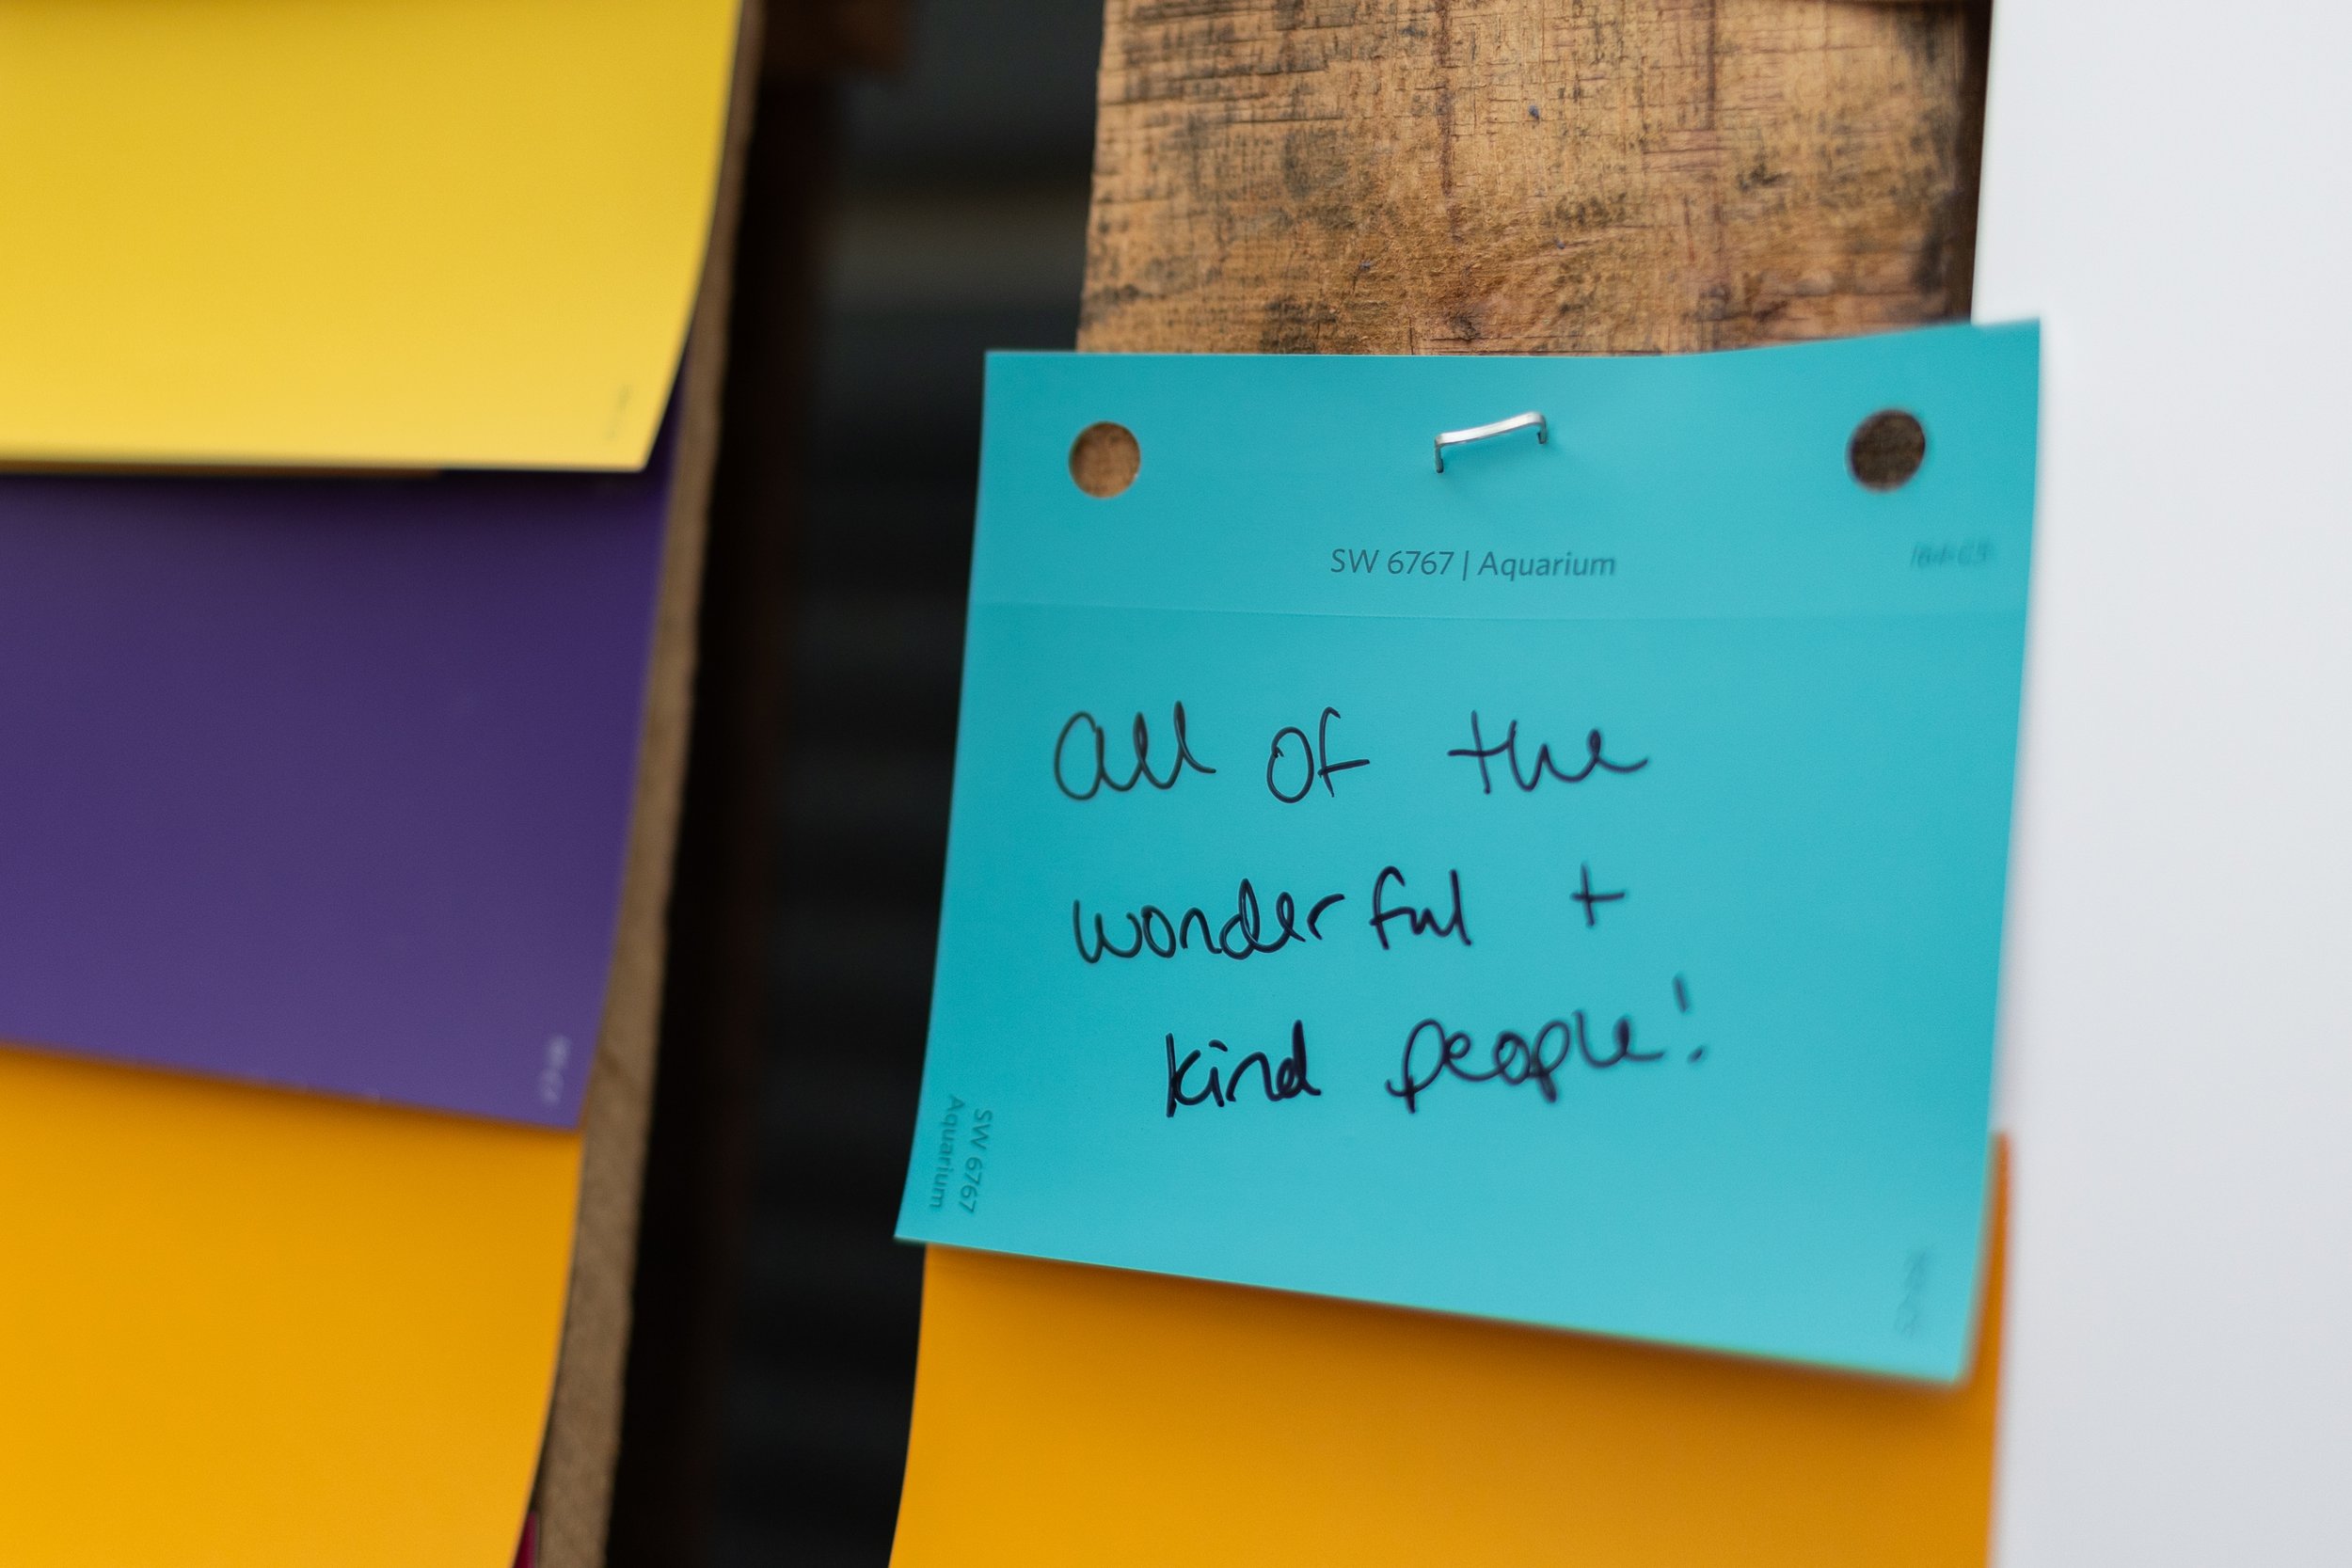 SW 6767 | Aquarium
all of the
wonderful +
kind people!
SW 6767
Aquarium